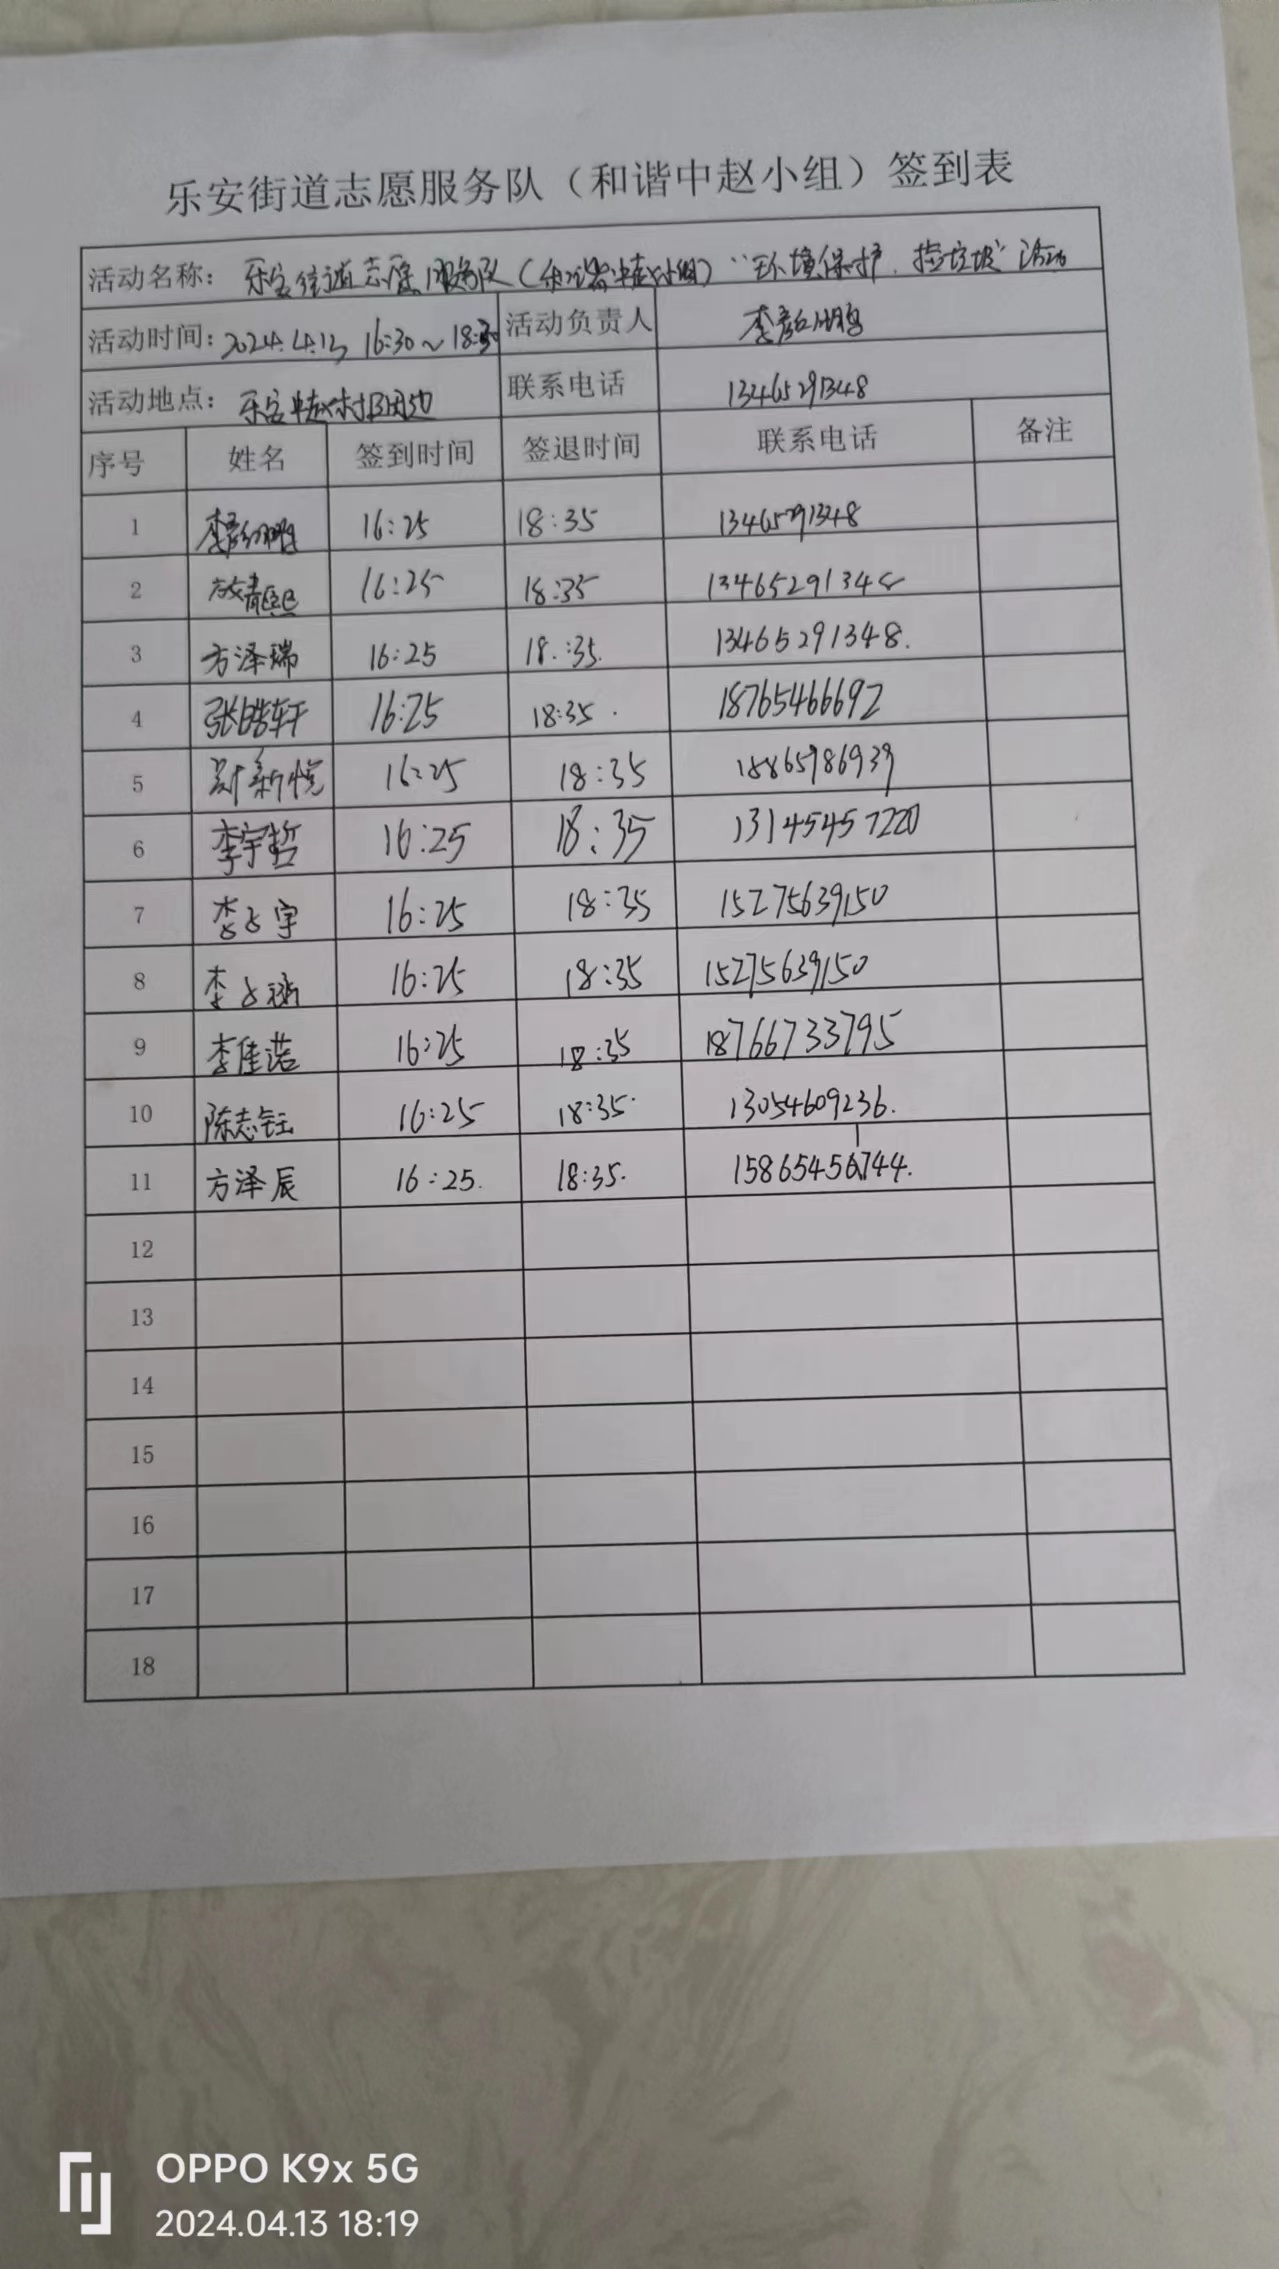 乐安街道志愿服务队（和谐中赵小组）签到表
活动名称： 乐安街道志愿服务队（和谐中赵小组）“环境保护，捡垃圾”活动
活动时间：2024.4.13 16:30～18:30 活动负责人 李彦鹏
活动地点： 乐安中赵村周边 联系电话 13465291348
序号 姓名 签到时间 签退时间 联系电话 备注
1 16:25 18:35 13465291348
2 16:25 18:35 13465291348
3 方泽瑞 16:25 18:35 13465291348.
4 张皓轩 16:25 18:35 18765466692
5 新悦 16:25 18:35
6 李宇哲 16:25 18:35 13145457220
7 李 宇 16:25 18:35 15275639150
8 李 16:25 18:35 15275639150
9 李佳诺 16:25 18:35 18766733795
10 陈志钰 16:25 18:35 13054609236.
11 方泽辰 16:25. 18:35. 15865456744.
12
13
14
15
16
17
18
OPPO K9x 5G
2024.04.13 18:19